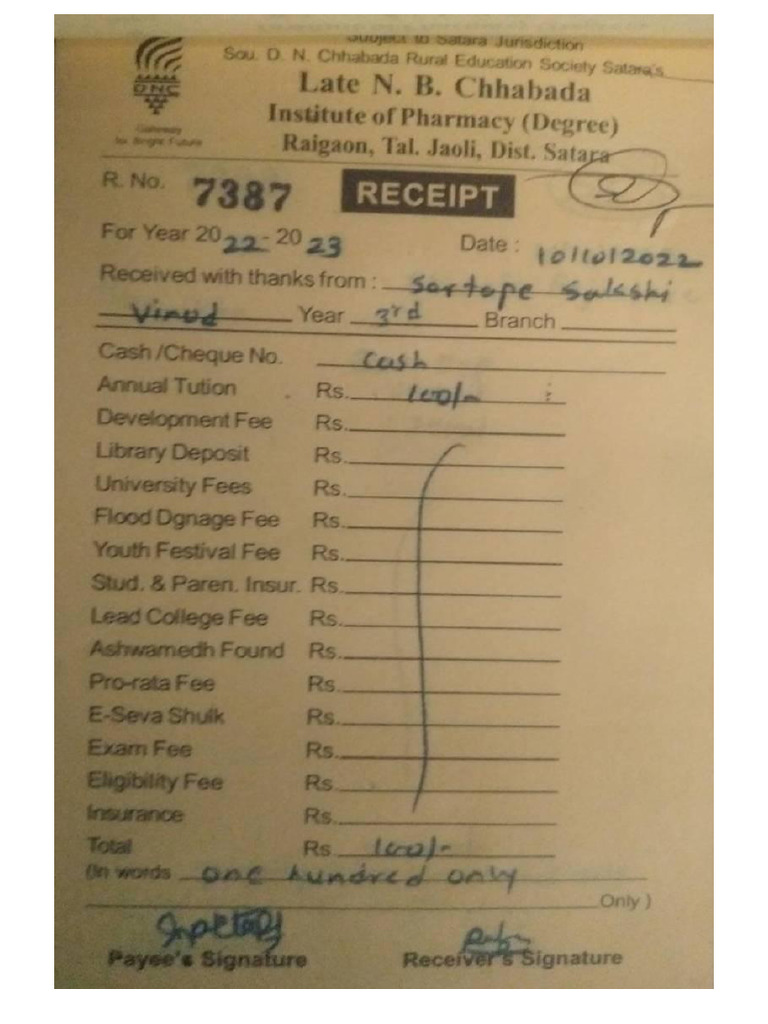 Subject to Satara Jurisdiction
Sou. D. N. Chhabada Rural Education Society Satara's
DNC
Gateway
for Bright Future
Late N. B. Chhabada
Institute of Pharmacy (Degree)
Raigaon, Tal. Jaoli, Dist. Satara
R. No. 7387 RECEIPT
For Year 2022-2023 Date : 10/10/2022
Received with thanks from : Sartape Sakshi
Vinod Year 3rd Branch
Cash /Cheque No. Cash
Annual Tution Rs. 100/-
Development Fee Rs.
Library Deposit Rs.
University Fees Rs.
Flood Dgnage Fee Rs.
Youth Festival Fee Rs.
Stud. & Paren. Insur. Rs.
Lead College Fee Rs.
Ashwamedh Found Rs.
Pro-rata Fee Rs.
E-Seva Shulk Rs.
Exam Fee Rs.
Eligibility Fee Rs.
Insurance Rs.
Total Rs. 100/-
(In words one hundred only
Only )
Payee's Signature Receiver's Signature